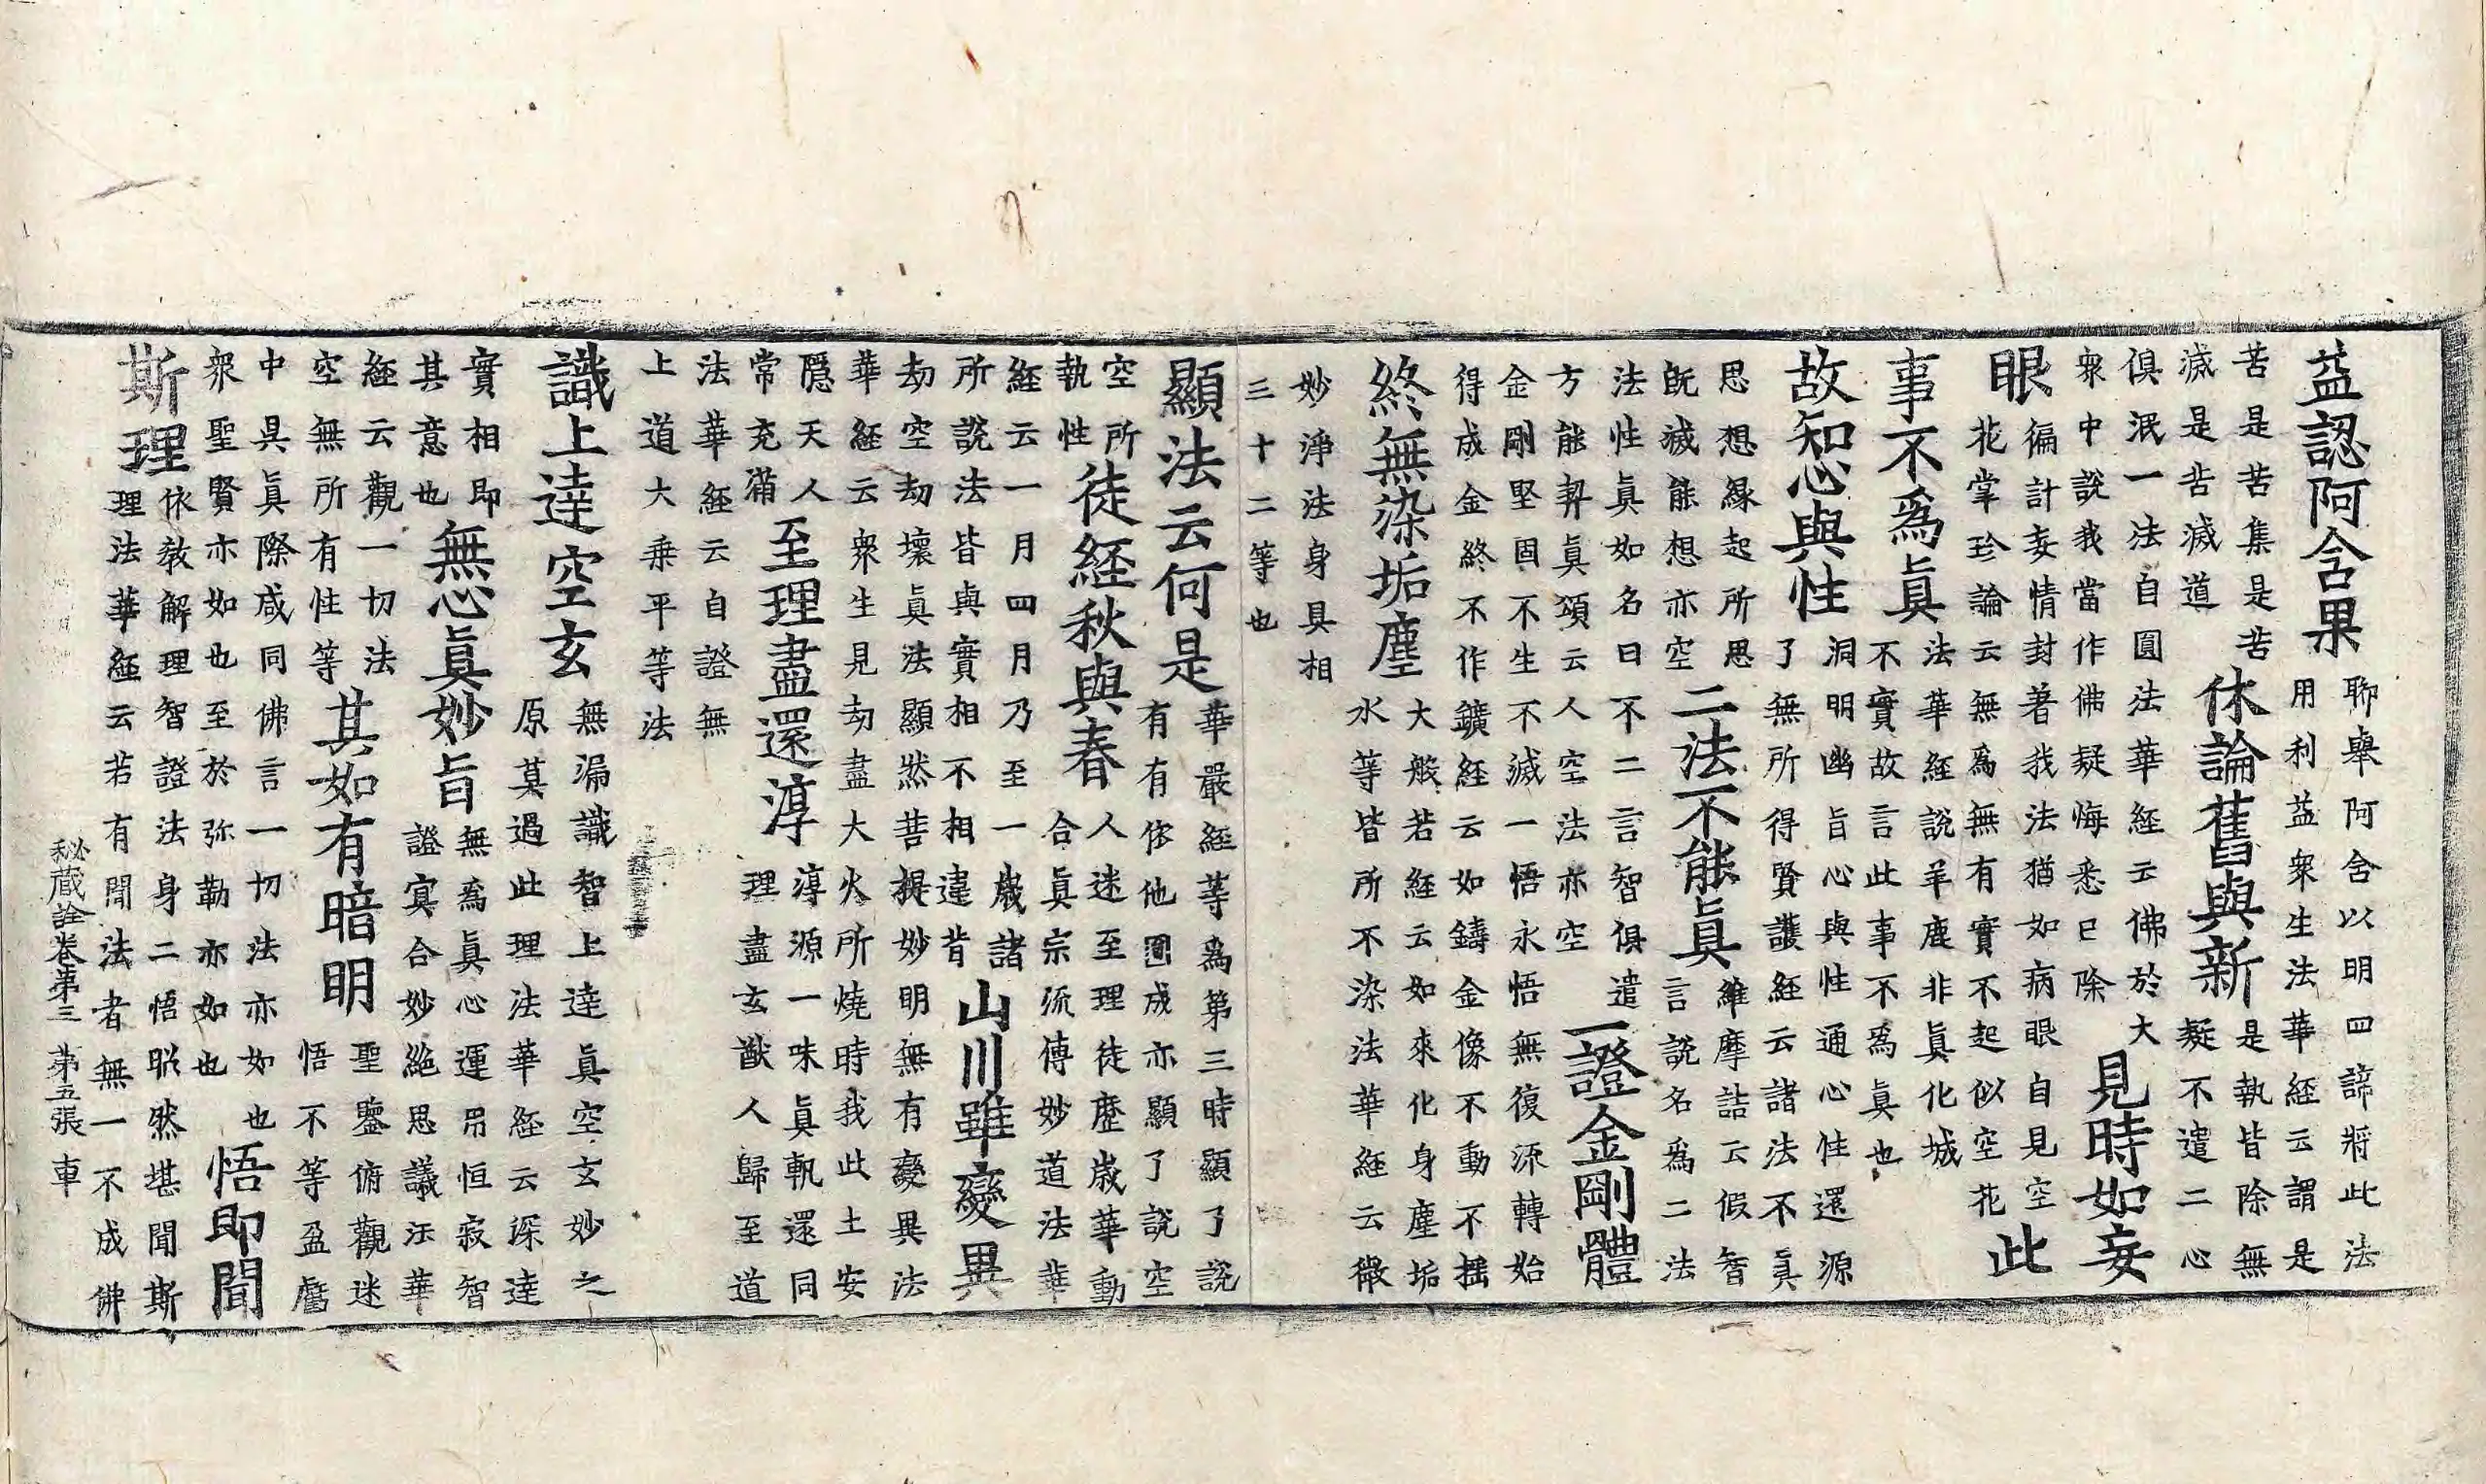 益認阿含果
聊舉阿含以明四諦將此法
用利益衆生法華経云謂是
苦是苦集是苦
滅是苦滅道
休論舊與新
是執皆除無
疑不遣二心
俱泯一法自圓法華経云佛於大
衆中說我當作佛疑悔悉已除
見時如妄
眼
徧計妄情封著我法猶如病眼自見空
花掌珍論云無爲無有實不起似空花
此
事不爲眞
法華経說羊鹿非眞化城
不實故言此事不爲眞也
故知心與性
洞明幽旨心與性通心性還源
了無所得賢護経云諸法不眞
思想緣起所思思
既滅能想亦空
二法不能眞
維摩詰云假智
言說名爲二法
法性眞如名曰不二言智俱遣
方能契眞頌云人空法亦空
一證金剛體
金剛堅固不生不滅一悟永悟無復源轉始
得成金終不作鑛経云如鑄金像不動不揺
終無染垢塵
大般若経云如來化身塵垢
水等皆所不染法華経云微
妙淨法身具相
三十二等也
顯法云何是
華嚴経等爲第三時顯了說
有有依他圓成亦顯了說空
空所
執性
徒経秋與春
人迷至理徒歷歲華動
合眞宗流傳妙道法華
経云一月四月乃至一歲諸
所說法皆與實相不相違背
山川雖變異
劫空劫壞眞法顯然菩提妙明無有變異法
華経云衆生見劫盡大火所燒時我此土安
隱天人
常充滿
至理盡還淳
淳源一味眞軌還同
理盡玄猷人歸至道
法華経云自證無
上道大乗平等法
識上達空玄
無漏識智上達眞空玄妙之
原莫過此理法華経云深達
實相即
其意也
無心眞妙旨
無爲眞心運用恒寂智
證冥合妙絶思議法華
経云觀一切法
空無所有性等
其如有暗明
聖鑒俯觀迷
悟不等盈虧
中具眞際咸同佛言一切法亦如也
衆聖賢亦如也至於弥勒亦如也
悟即聞
斯理
依教解理智證法身二悟昭然堪聞斯
理法華経云若有聞法者無一不成佛
秘蔵詮卷第三 第五張 車